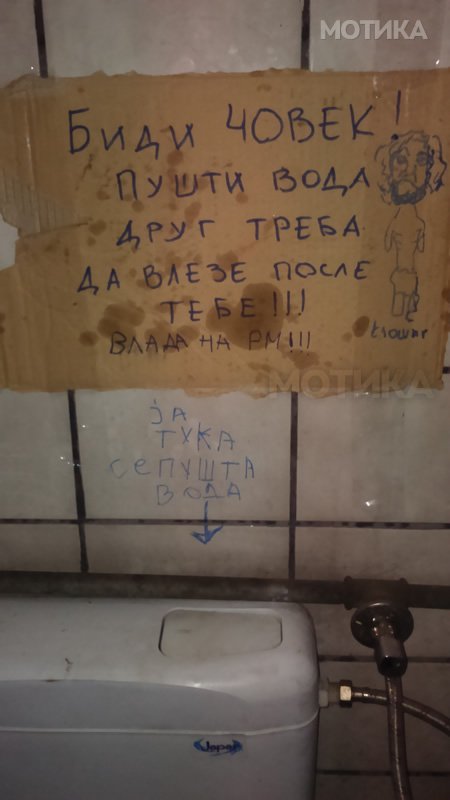 МОТИКА
БИДИ ЧОВЕК!
ПУШТИ ВОДА
ДРУГ ТРЕБА
ДА ВЛЕЗЕ ПОСЛЕ
ТЕБЕ!!!
ВЛАДА НА РМ!!!
МОТИКА
ЈА
ТУКА
СЕ ПУШТА
ВОДА